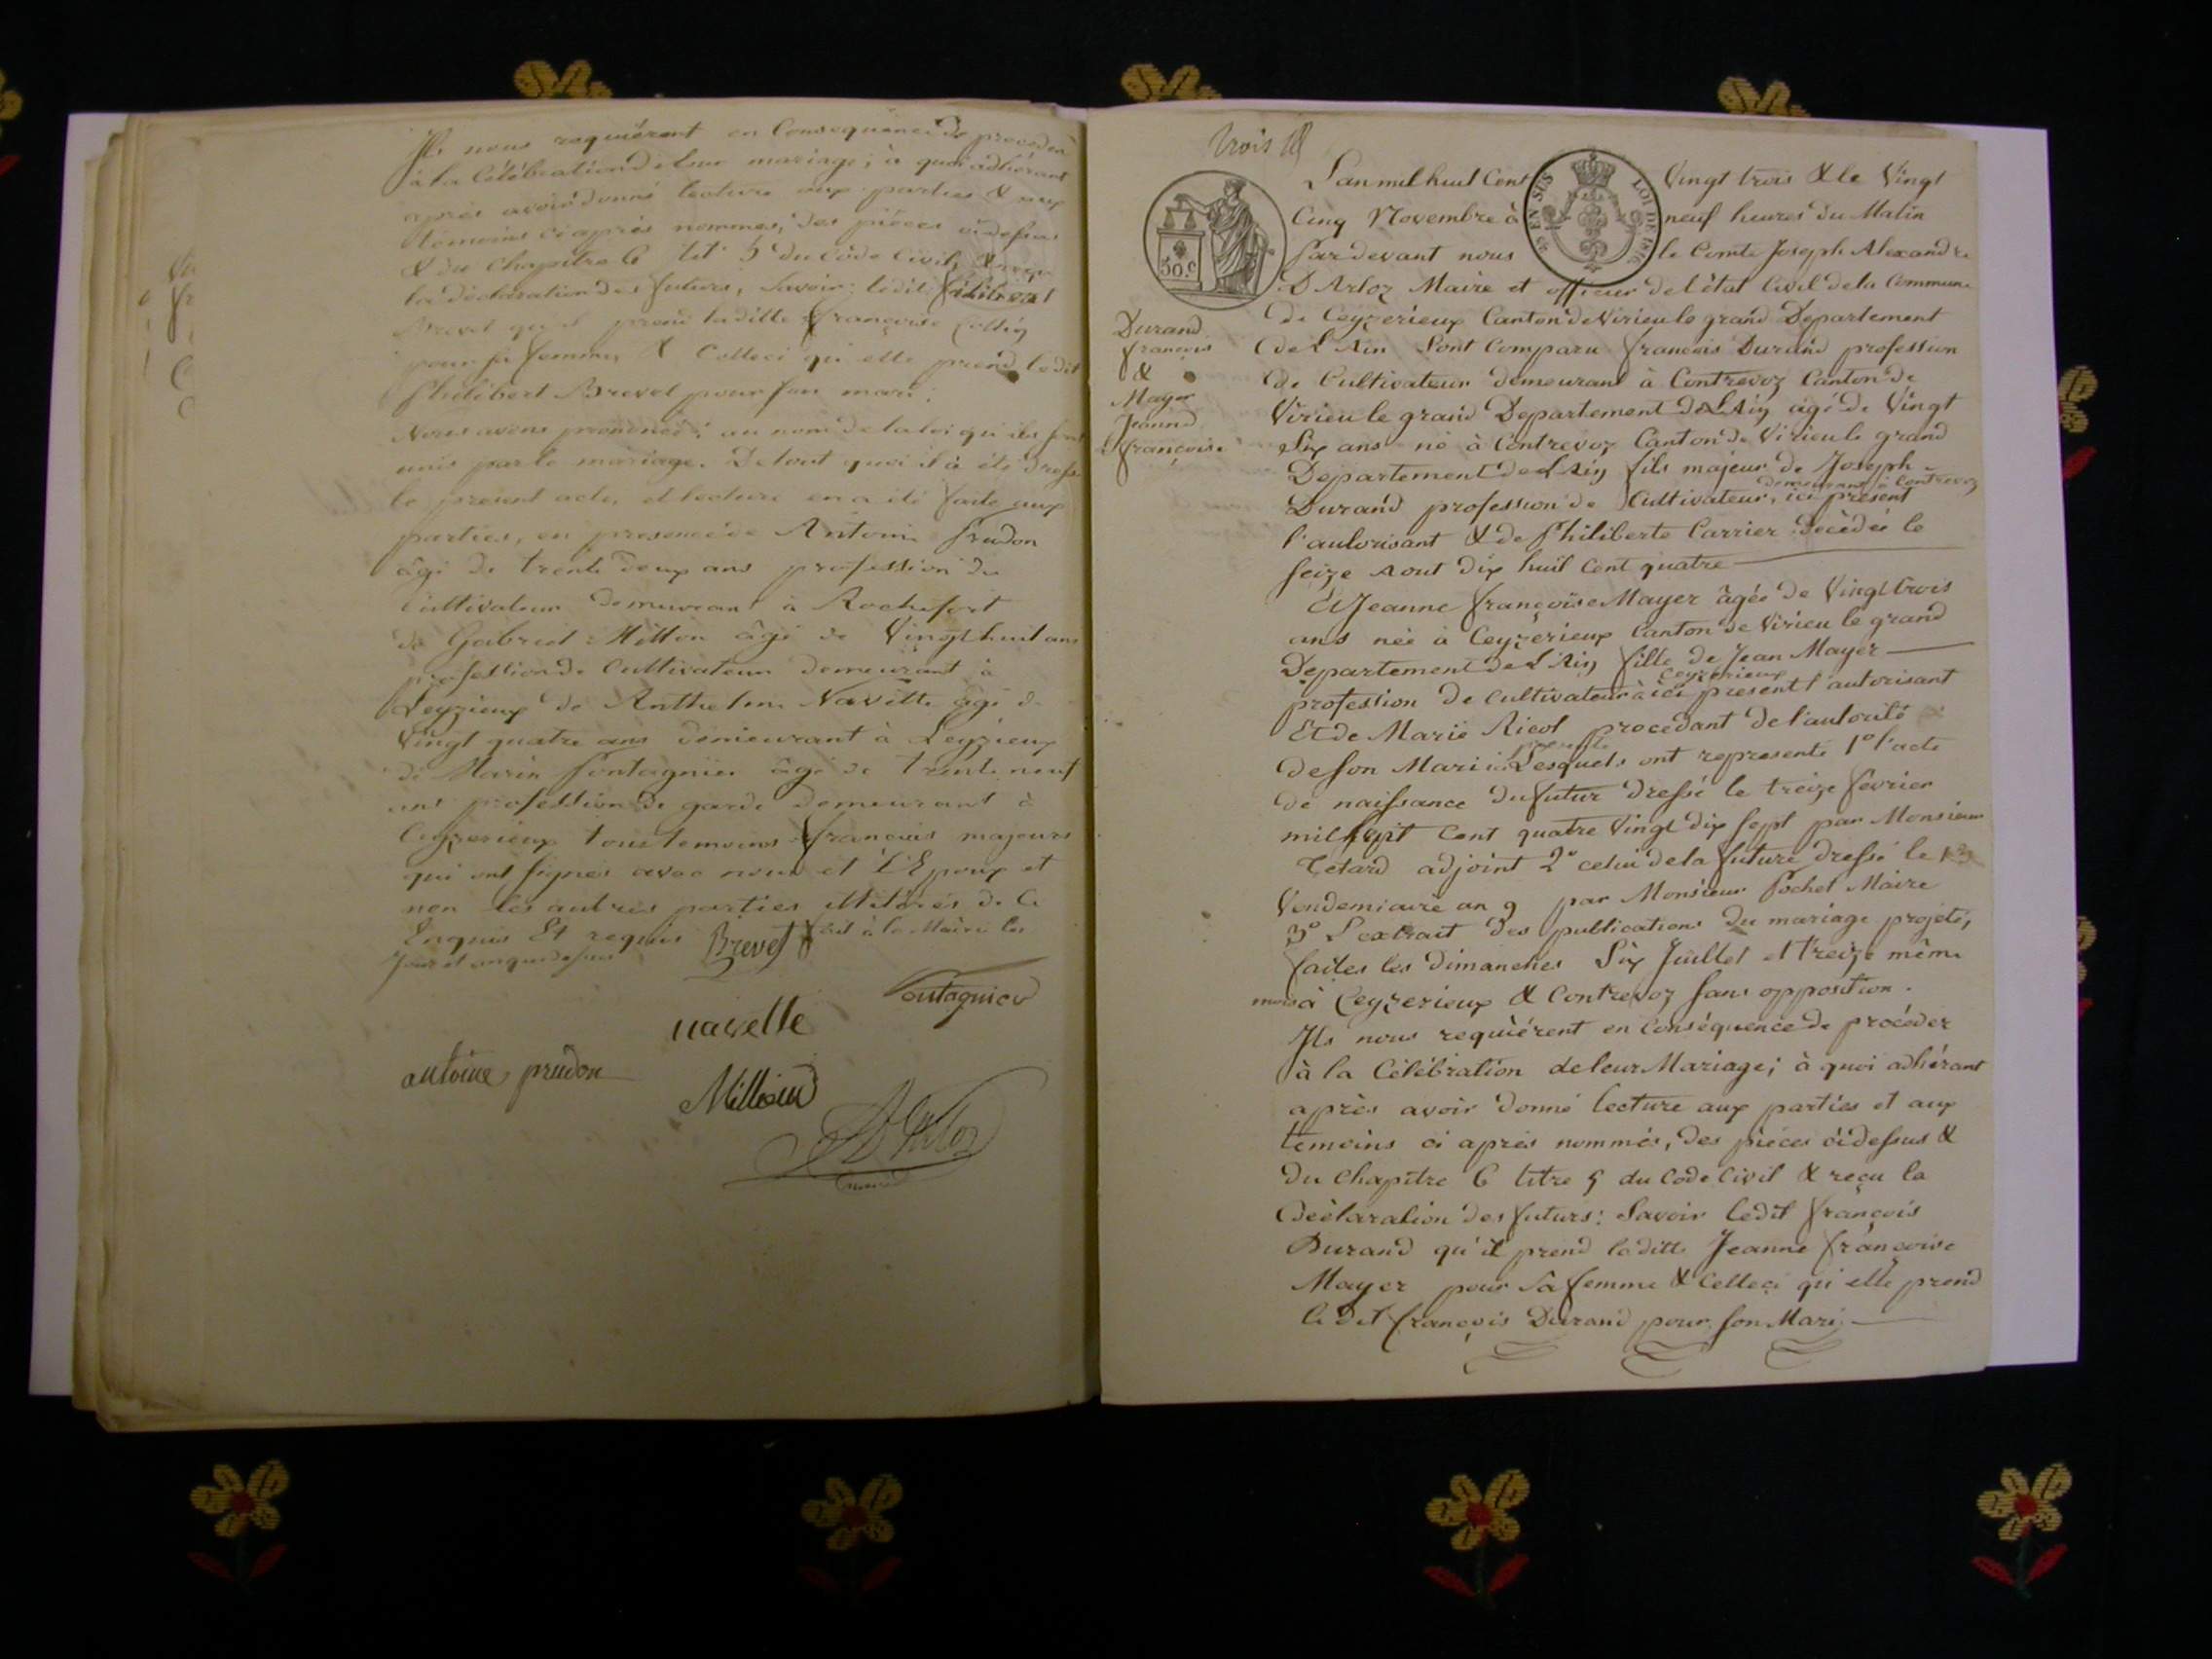 Ils nous requiérent en Consequence de proceder
à la Célébration de leur mariage; à quoi adhérant
après avoir donné lecture aux parties & aux
témoins ci après nommés, des pièces cidessus
& du Chapitre 6 tit. 5 du Code Civil, & reçu
la déclaration des futurs, Savoir: ledit philibert
Brevet qu'il prend laditte françoise Collig
pour sa femme, & Celleci qu'elle prend ledit
Philibert Brevet pour son mari.
Nous avons prononcé; au nom de la loi qu'ils sont
unis par le mariage. De tout quoi il à été dressé
le présent acte, et lecture en a été faite aux
parties, en presence de Antoine Prudon
âgé de trente deux ans profession de
Cultivateur demeurant à Rochefort
de Gabriel Milliou âgé de Vingt huit ans
profession de Cultivateur demeurant à
Leyzieux de Anthelme Navette âgé de
Vingt quatre ans demeurant à Leyzieux
de Marin Fontagnier âgé de trente neuf
ans profession de garde demeurant à
Ceyzerieux tous temoins français majeurs
qui ont signés avec nous et l'Epoux et
non les autres parties illitérés de Ce
Enquis Et requis Brevet fait à la Mairie les
Jour et an que dessus
navette
antoine prudon
Milliou
D'Arloz
trois
50. c
EN SUS
LOI DE 1816
L'an mil huit Cent Vingt trois & le Vingt
Cinq Novembre à neuf heures du Matin
Pardevant nous le Comte Joseph Alexandre
D'Arloz Maire et officier de l'état Civil de la Commune
de Ceyzerieux Canton de Virieu le grand Departement
de L'Ain Sont Comparu françois Durand profession
de Cultivateur demeurant à Contrevoz Canton de
Virieu le grand Departement de L'Ain âgé de Vingt
Six ans né à Contrevoz Canton de Virieu le grand
Departement de L'Ain fils majeur de Joseph
demeurant à Contrevoz
Durand profession de Cultivateur, ici présent
l'autorisant & de Philiberte Carrier décédée le
seize Aout dix huit cent quatre
Et Jeanne françoise Mayer âgée de Vingt trois
ans née à Ceyzerieux Canton de Virieu le grand
Departement de L'Ain fille de Jean Mayer
Ceyzerieux
profession de Cultivateur à ici présent l'autorisant
Et de Marie Ricot procédant de l'autorité
de son Mari ici Lesquels ont representé 1° l'acte
de naissance du futur dressé le treize fevrier
mil sept cent quatre Vingt dix sept par Monsieur
Tetard adjoint 2° celui de la future dressé le 13
Vendemiaire an 9 par Monsieur Pochet Maire
3° L'extrait des publications du mariage projeté,
faites les dimanches Six Juillet et treize même
mois à Ceyzerieux & Contrevoz sans opposition.
Ils nous requiérent en Conséquence de procéder
à la Célébration de leur Mariage; à quoi adhérant
après avoir donné lecture aux parties et aux
témoins ci après nommés, des pièces cidessus &
du Chapitre 6 titre 5 du Code Civil & reçu la
déclaration des futurs: Savoir ledit françois
Durand qu'il prend laditte Jeanne françoise
Mayer pour Sa femme & Celleci qu'elle prend
le dit françois Durand pour son Mari
Durand
françois
&
Mayer
Jeanne
françoise